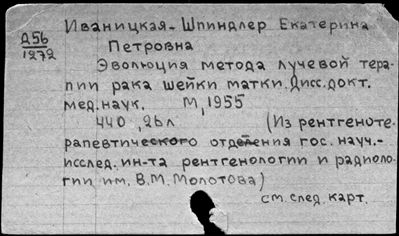 Иваницкая-Шпиндлер Екатерина
Д56
1272
Петровна
Эволюция метода лучевой тера-
пии рака шейки матки. Дисс. докт.
мед. наук. М, 1955
440, 26 л. (Из рентгеноте-
рапевтического отделения гос. науч.-
исслед. ин-та рентгенологии и радиоло-
гии им. В.М. Молотова)
см. след. карт.